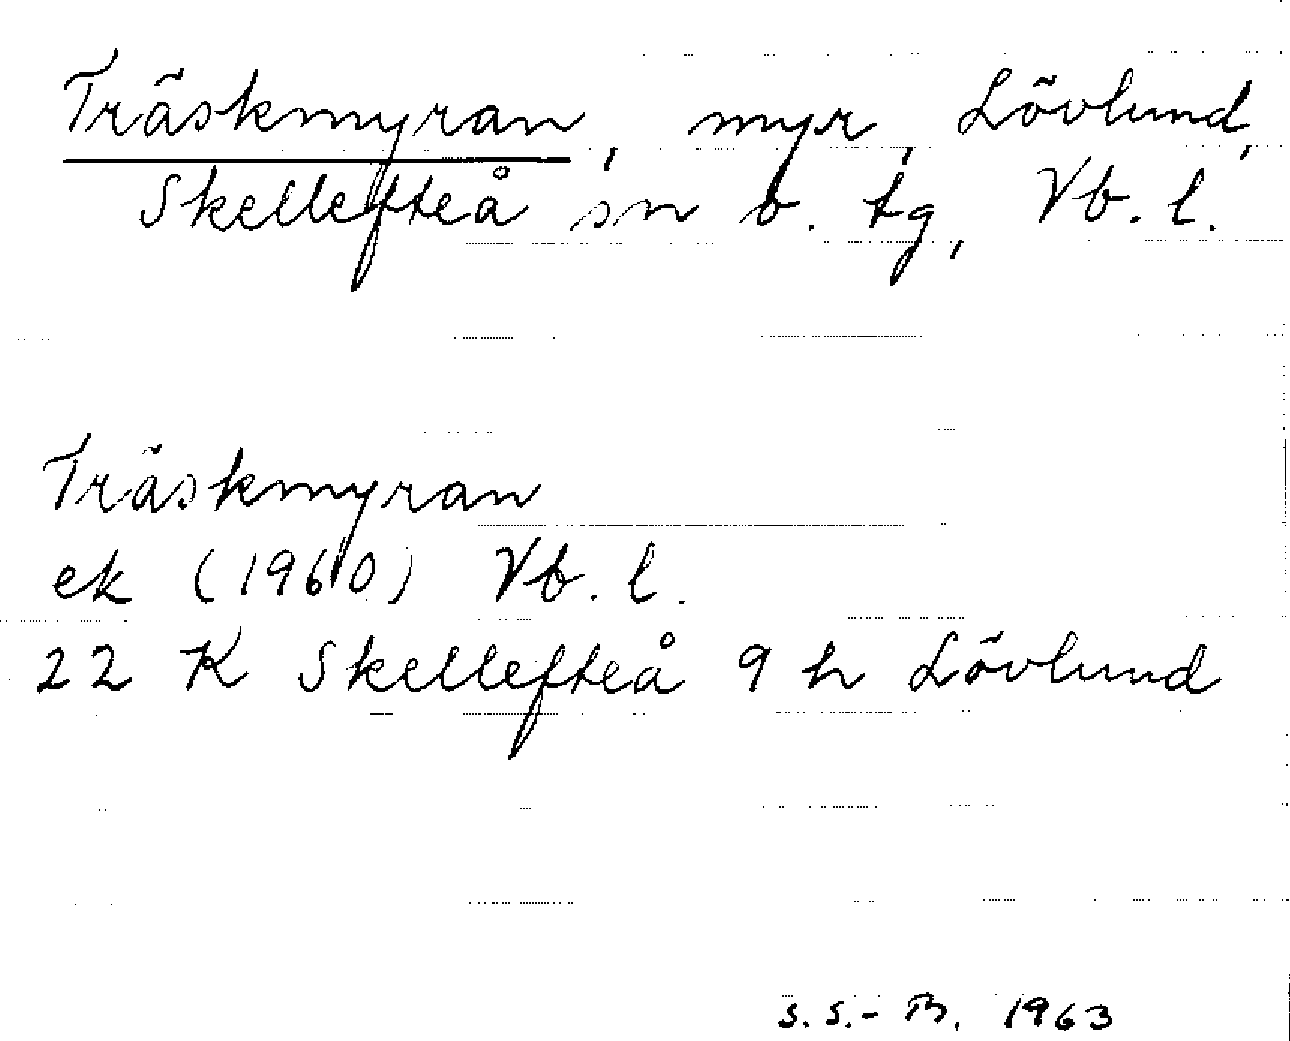 Träskmyran, myr, Lövlund,
Skellefteå sn o. tg, Vb. l.
Träskmyran
ek (1960) Vb. l.
22 K Skellefteå 9 h Lövlund
S. S.- Th. 1963